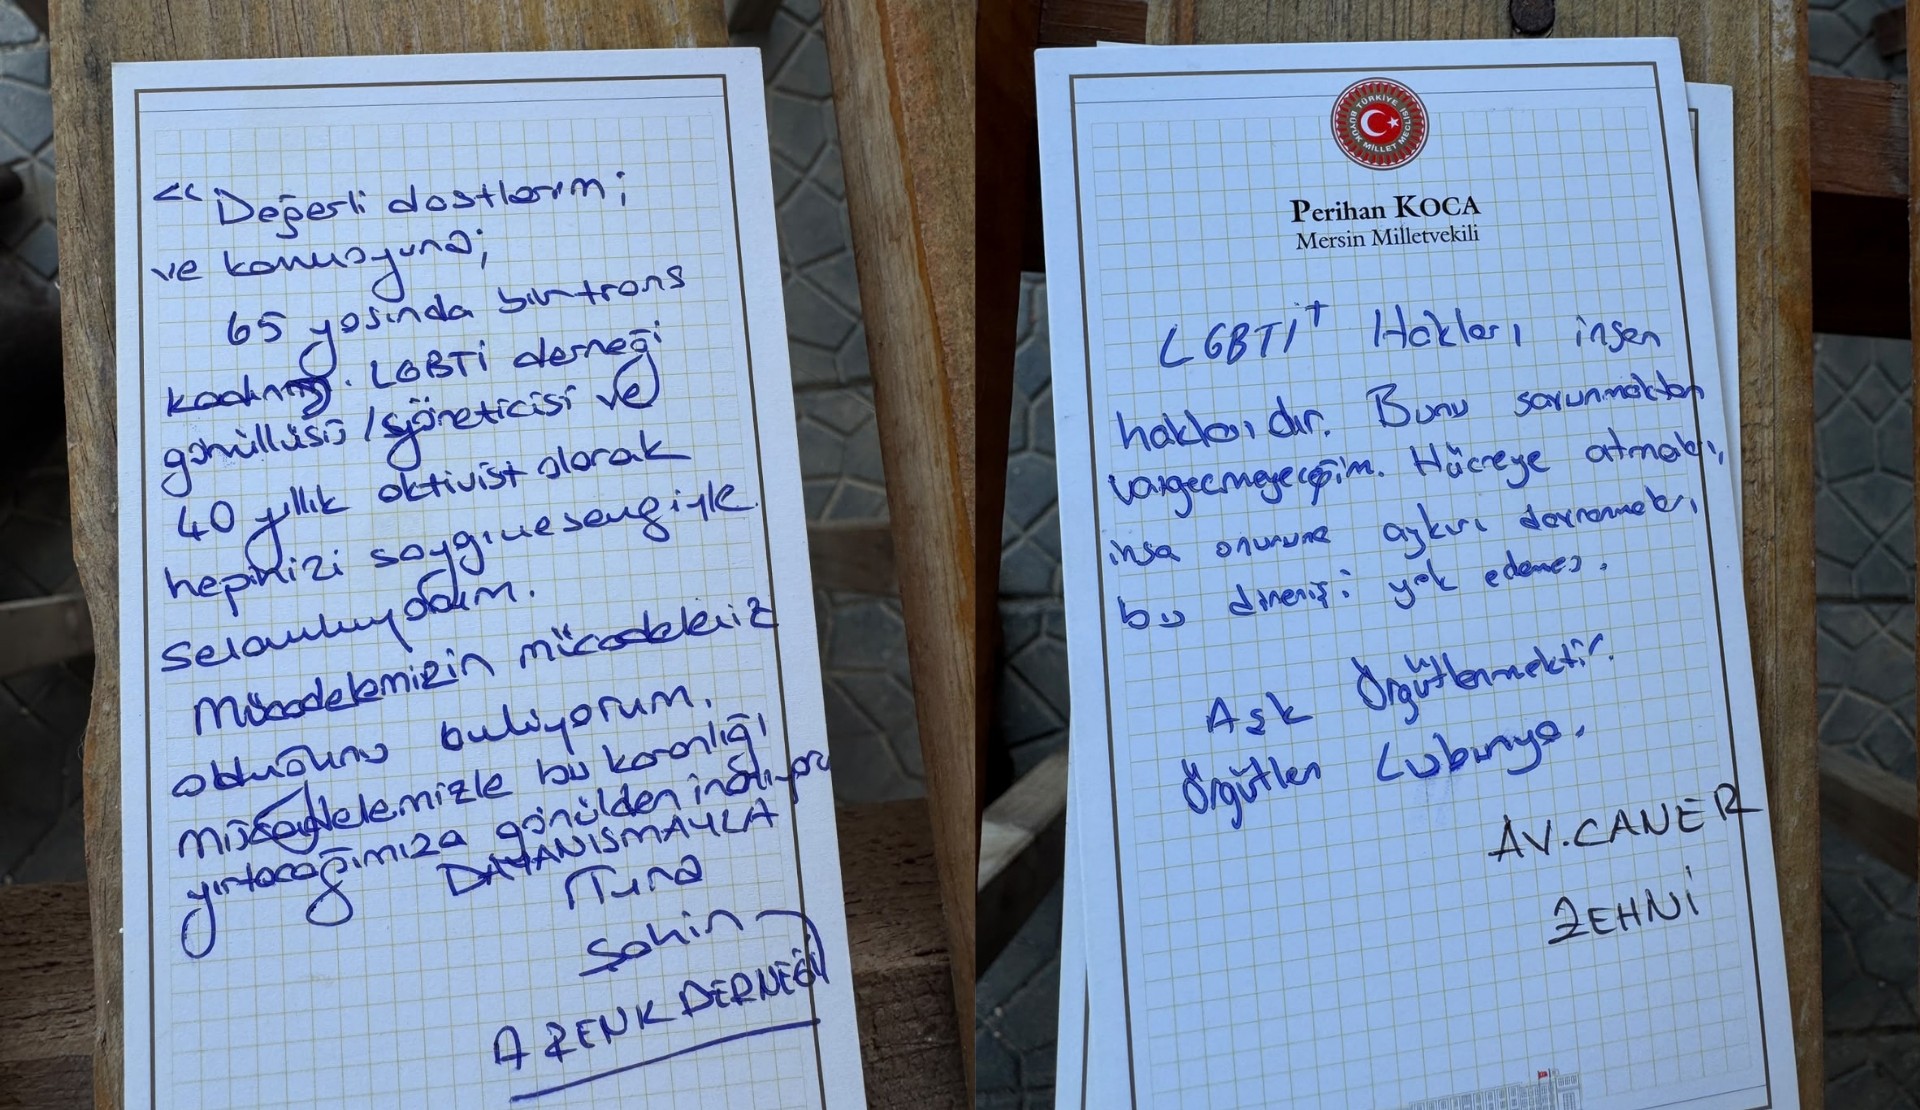 “Değerli dostlarım;
ve kamuoyuna;
65 yaşında bir trans
kadınım. LGBTİ derneği
gönüllüsü / yöneticisi ve
40 yıllık aktivist olarak
hepinizi saygı ve sevgiyle
selamlıyorum.
Mücadelemizin mücadeleniz
olduğunu biliyorum.
mücadelemizle bu karanlığı
yırtacağımıza gönülden inanıyoru
DAYANIŞMAYLA
Tuna
Şahin
A RENK DERNEĞİ
TÜRKİYE BÜYÜK MİLLET MECLİSİ
Perihan KOCA
Mersin Milletvekili
LGBTİ+ Hakları insan
haklarıdır. Bunu savunmaktan
vazgeçmeyeceğim. Hücreye atmaları,
insa onuruna aykırı davranmaları
bu direnişi yok edemez.
Aşk Örgütlenmektir.
Örgütlen Lubunya.
AV. CANER
ZEHNİ